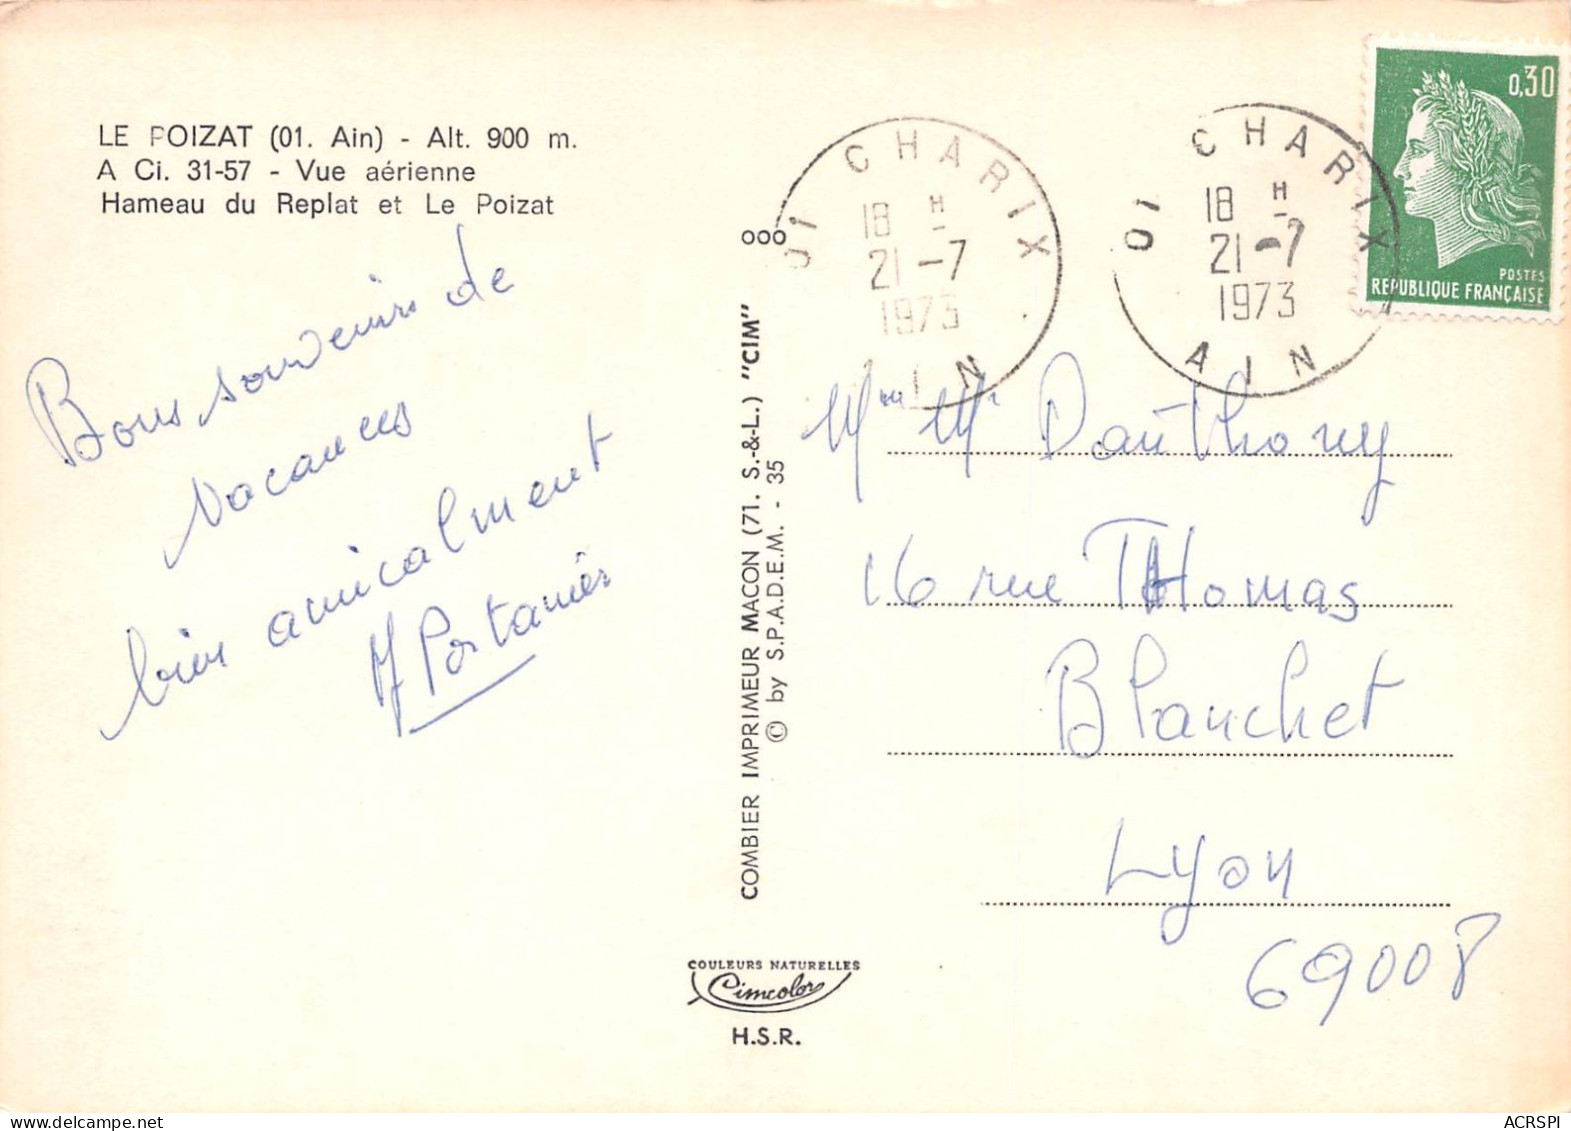 LE POIZAT (01. Ain) - Alt. 900 m.
A Ci. 31-57 - Vue aérienne
Hameau du Replat et Le Poizat
Bons souvenirs de
vacances
bien amicalment
Portanier
COMBIER IMPRIMEUR MACON (71. S.-&-L.) "CIM"
© by S.P.A.D.E.M. - 35
ooo
COULEURS NATURELLES
Cimcolor
H.S.R.
01 CHARIX
18 H
21-7
1973
AIN
01 CHARIX
18 H
21-7
1973
AIN
0,30
POSTES
REPUBLIQUE FRANÇAISE
Mme Mr Dauthony
16 rue THomas
Blanchet
Lyon
69008
ACRSPI